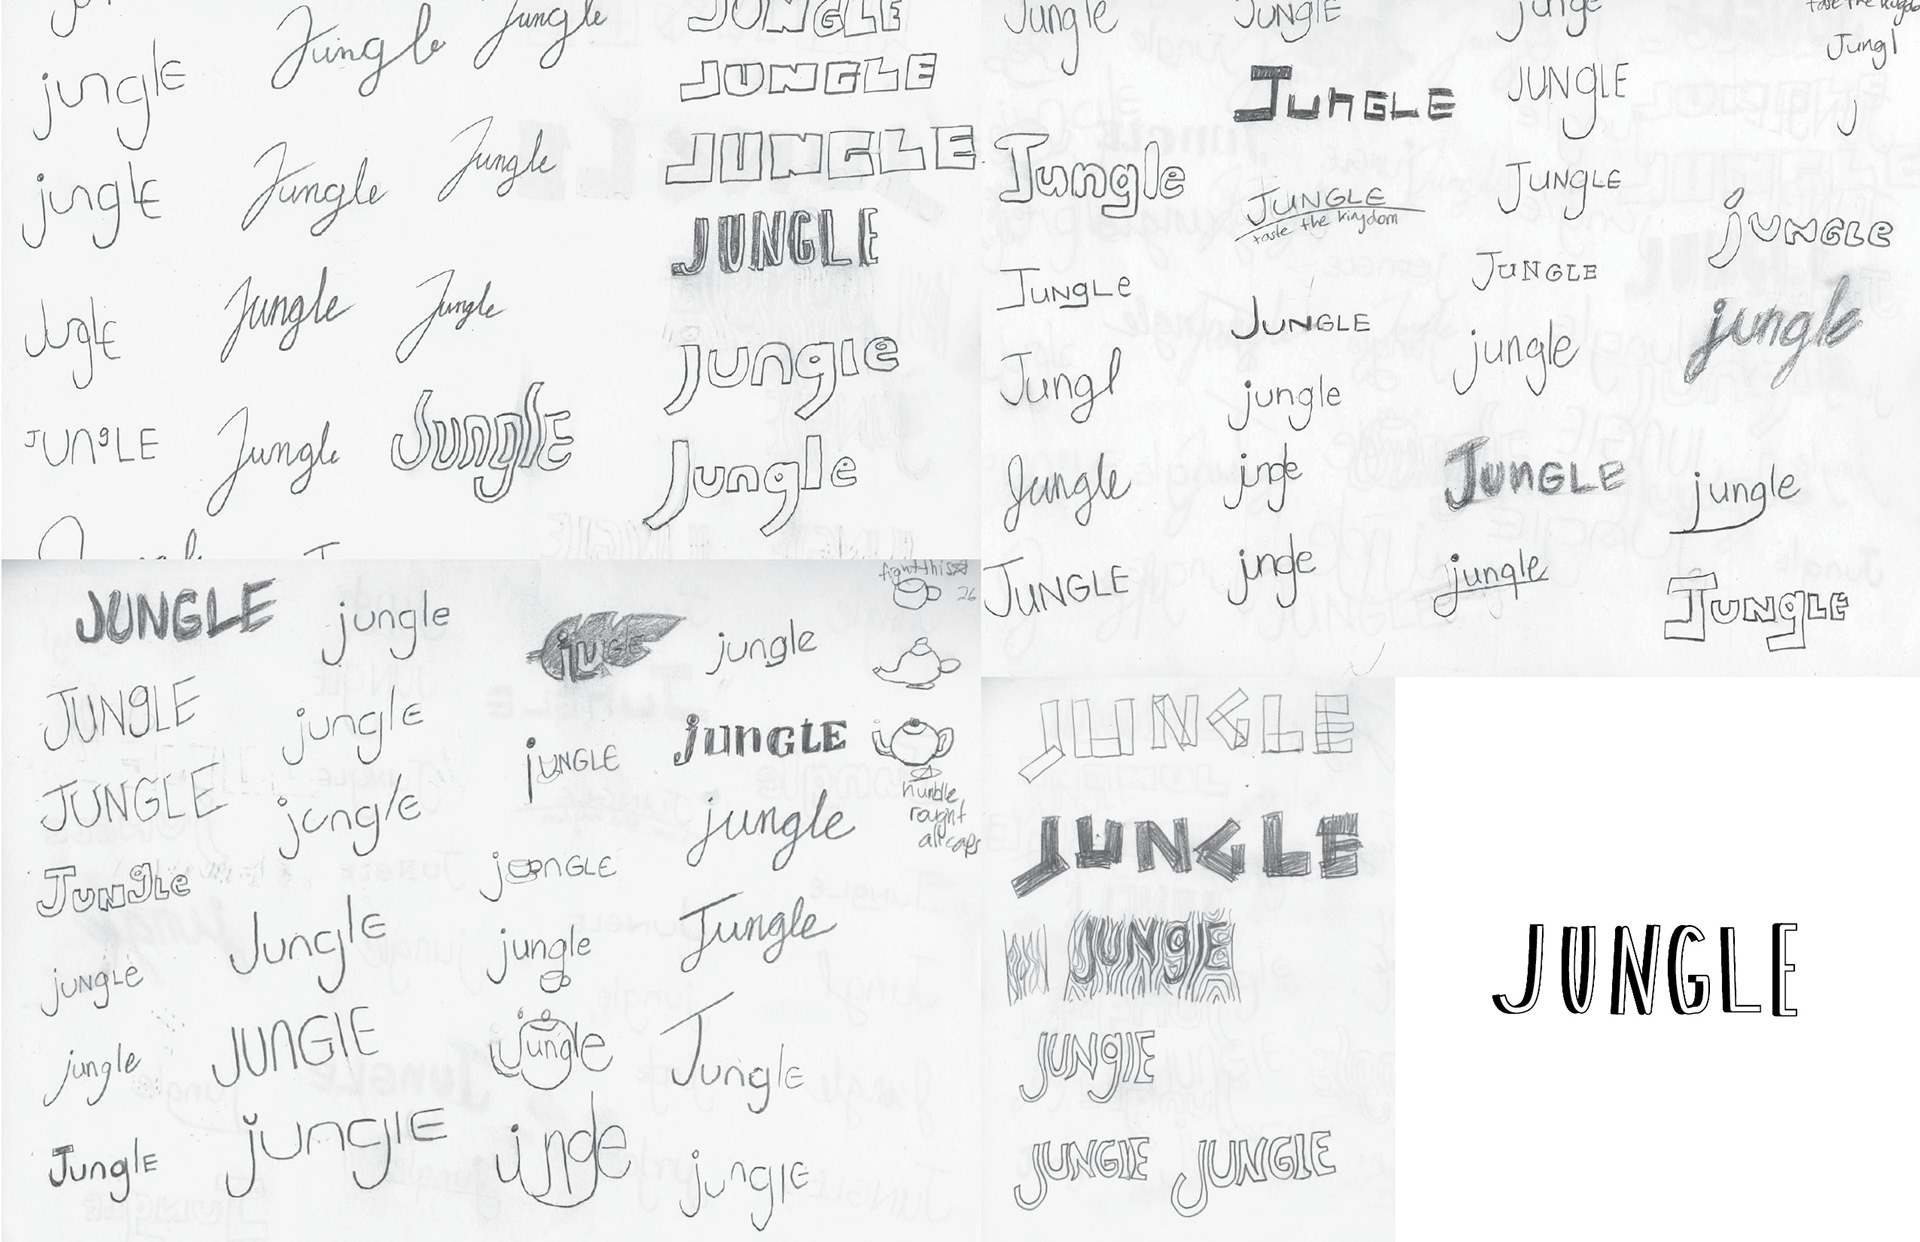 junglE
jungLE
JUngLE
Jungle
Jungle
Jungle
Jungle
Jungle
Jungle
Jungle
Jungle
JUNGLE
JUNGLE
JUNGLE
JUNGLE
jungle
Jungle
Jungle
Jungle
JUNGLE
Jungl
Jungle
JUNGLE
JUNGLE
JUNGLE
JUNGLE
taste the kingdom
JUNGLE
jungle
jngle
jngle
JUNgLE
JUNGLE
JUNGLE
jungle
JUNGLE
jungle
Jungl
J
jUNGLE
jungle
jungle
Jungle
JUNGLE
JUNgLE
JUNGLE
JUNgLE
jungLE
jungle
JunglE
jungle
jungle
junglE
JunglE
JUNGLE
junglE
jUNGLE
jungle
Jungle
jungle
jungLE
jungle
Jungle
JunglE
junglE
fight this
26
humble
all caps
JUNGLE
JUNGLE
JUNgLE
JUNGLE
JUNGLE
JUNGLE